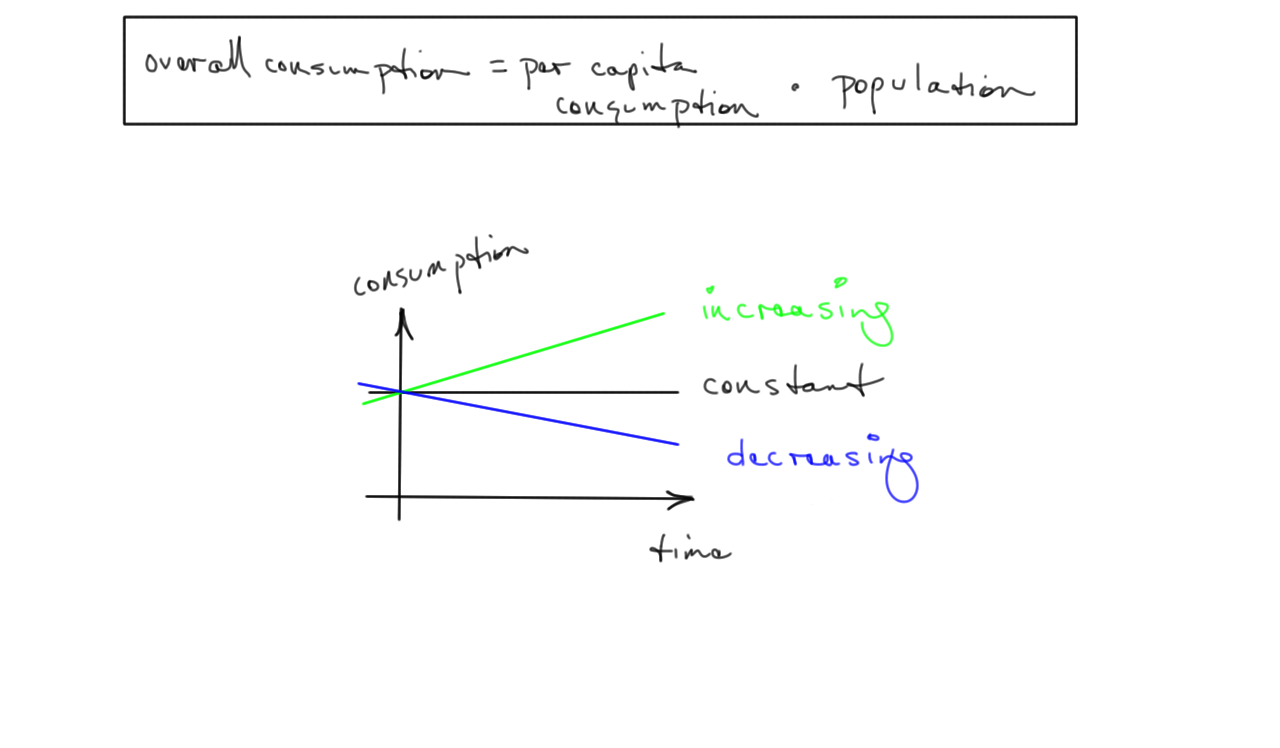 overall consumption = per capita
consumption · population
consumption
increasing
constant
decreasing
time